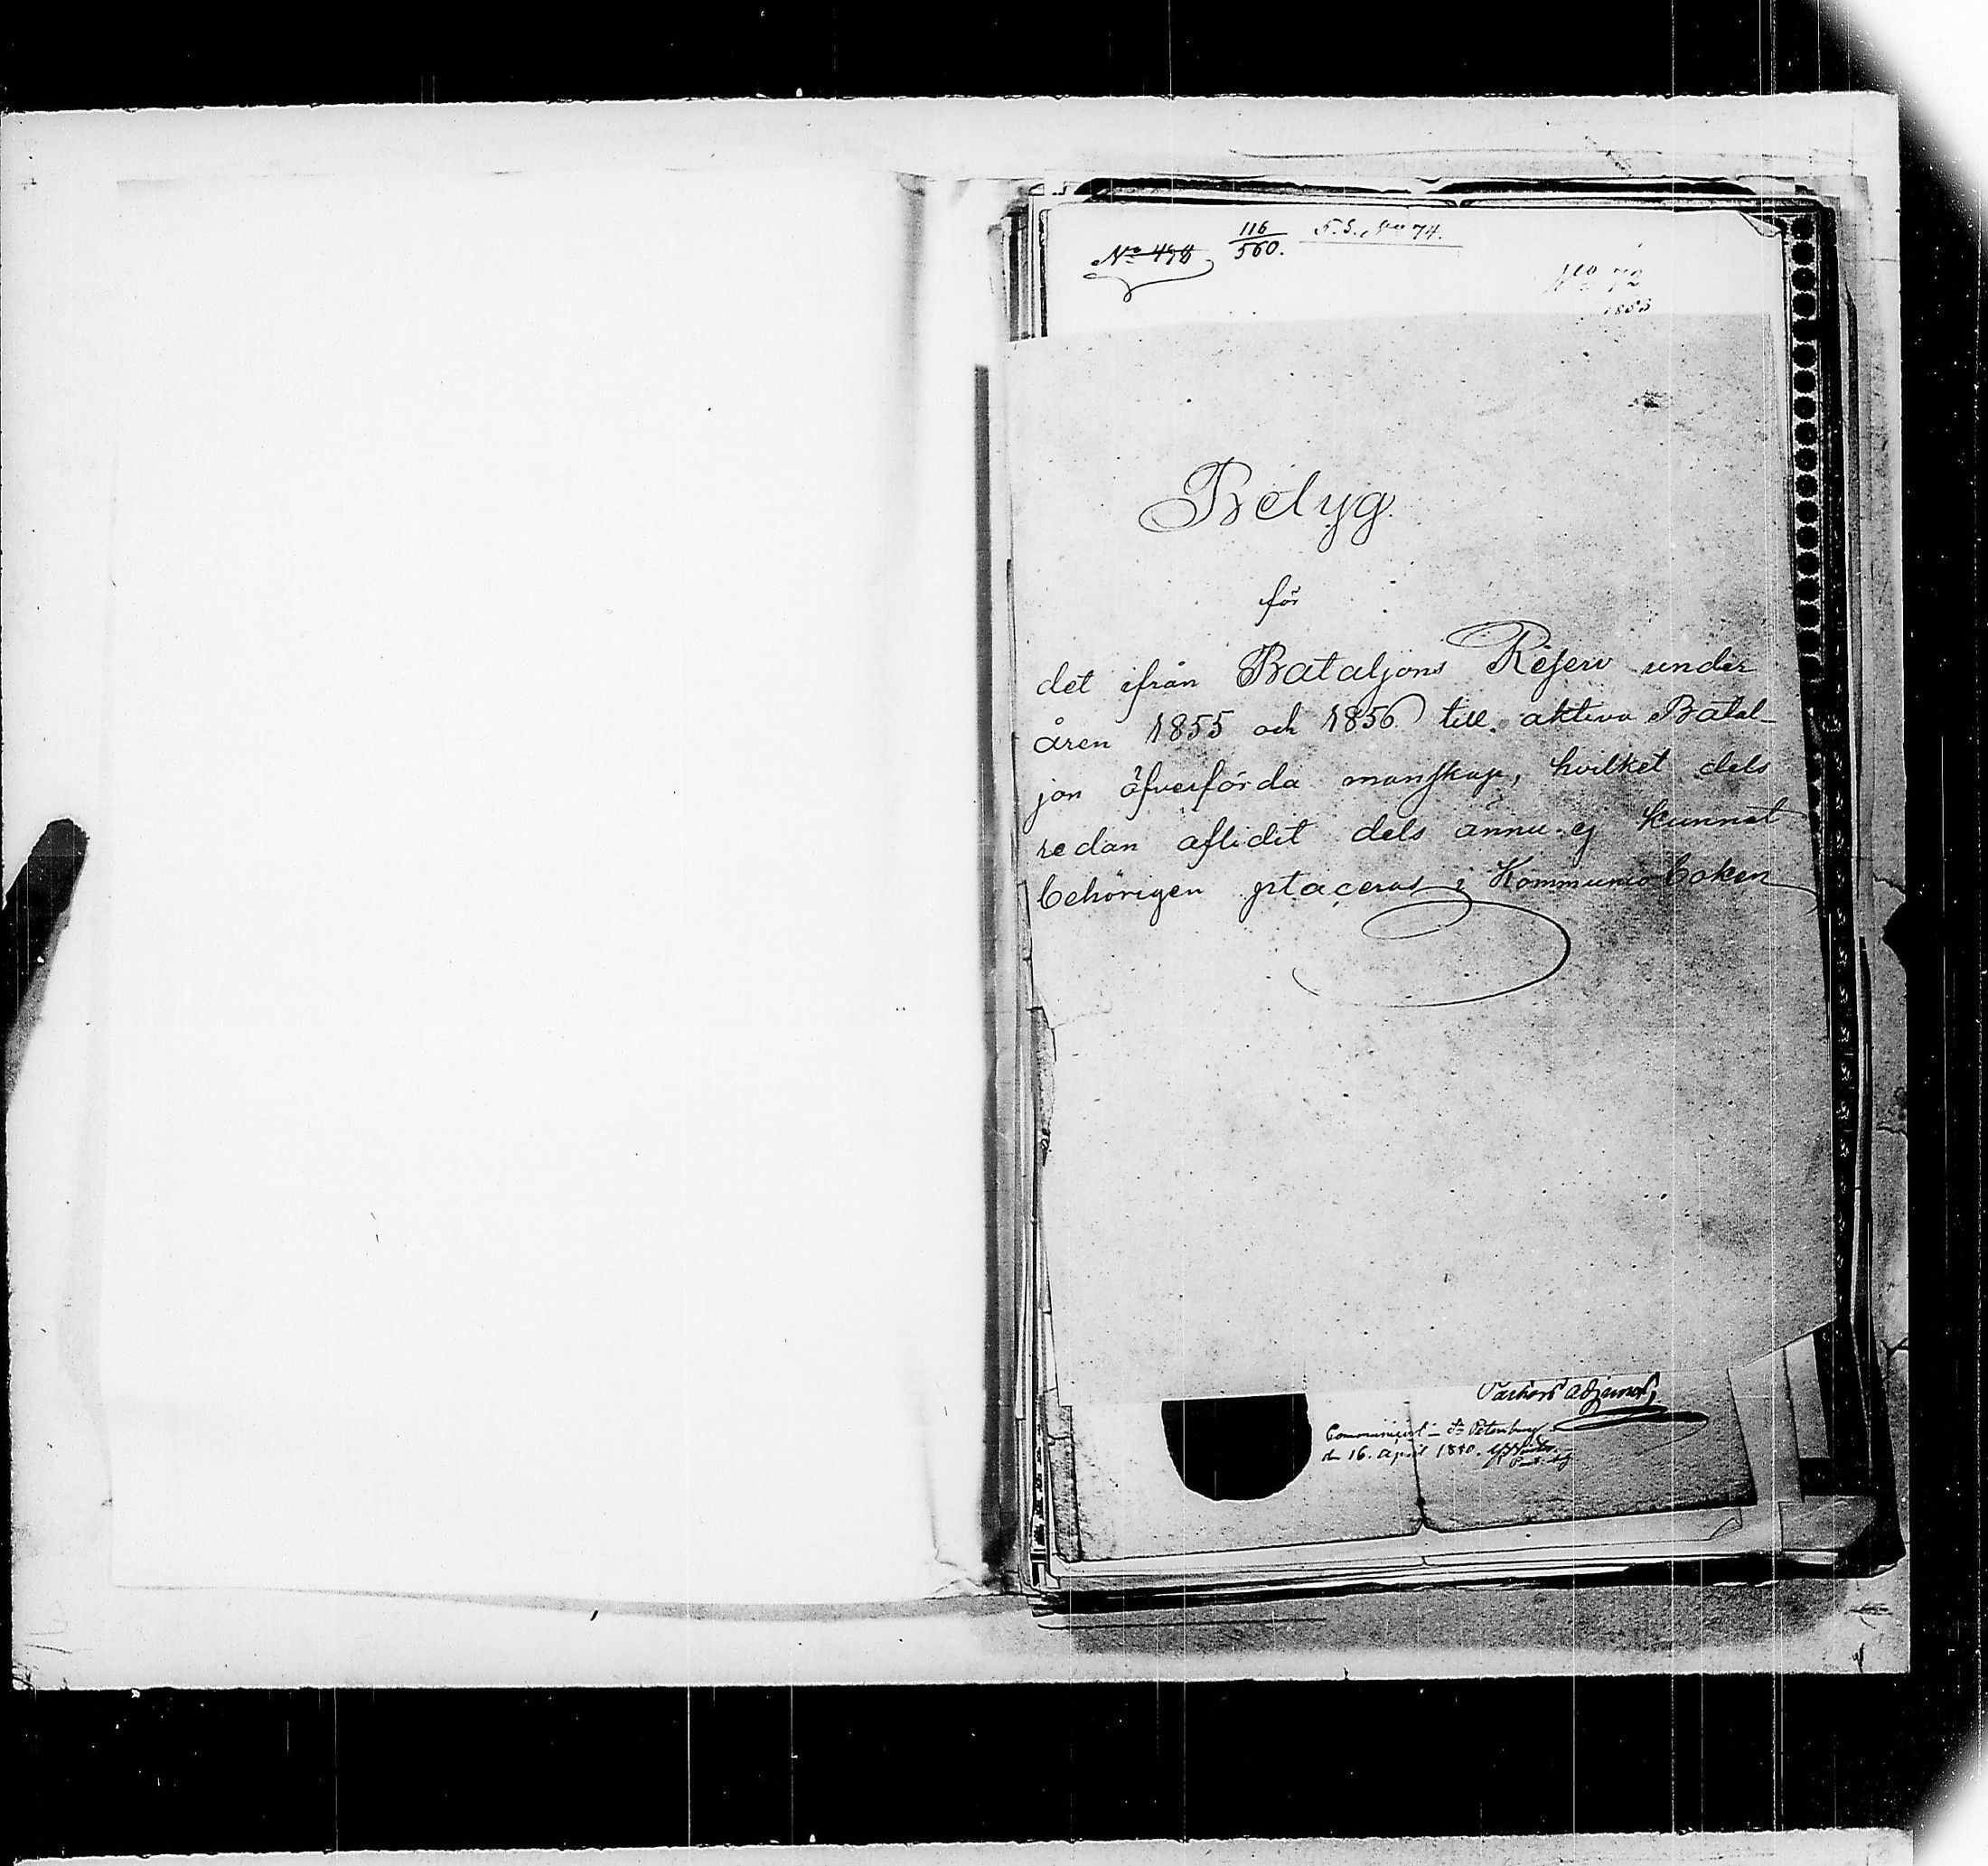 No 498
116
560.
No 74.
No 72
1853
Betyg
för
det ifrån Bataljons Reserv under
åren 1855 och 1856 till aktiva Batal-
jon öfverförda manskap, hvilket dels
redan aflidit dels ännu ej kunnat
behörigen placeras i Kommunioboken
Pastors adjunct,
Communicerat St Petersburg
den 16. April 1880.